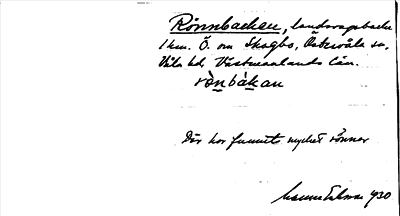 Rönnbacken, landsvägsbacke
1 km. Ö. om Skogbo, Östervåla sn,
Våla hd, Västmanlands län.
rön̲bàkan
Där har funnits mycket rönnar
1930